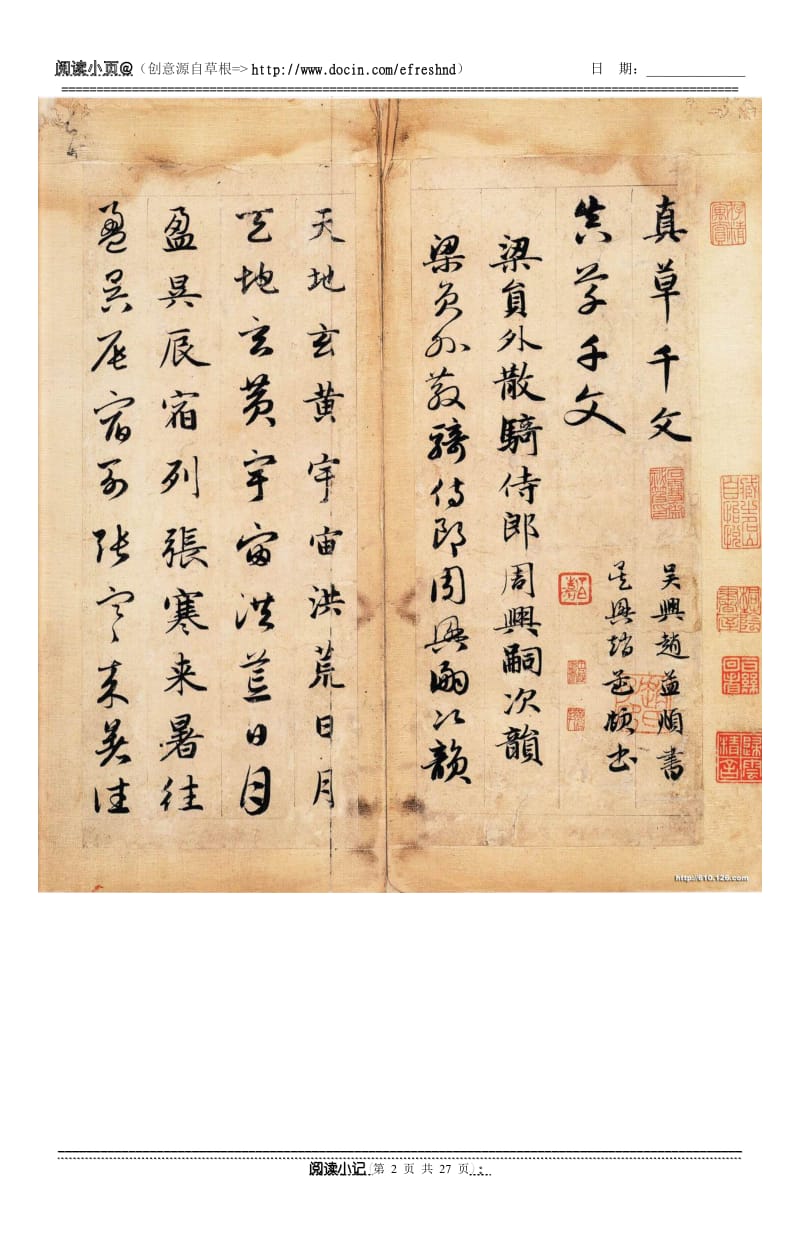 阅读小页@（创意源自草根=> http://www.docin.com/efreshnd） 日 期：
真草千文
吴興趙孟頫書
真草千文
吴興趙孟頫書
梁員外散騎侍郎周興嗣次韻
梁員外散騎侍郎周興嗣次韻
天地玄黄宇宙洪荒日月
天地玄黄宇宙洪荒日月
盈昃辰宿列張寒来暑往
盈昃辰宿列張寒来暑往
http://610.126.com
阅读小记（第 2 页 共 27 页）：